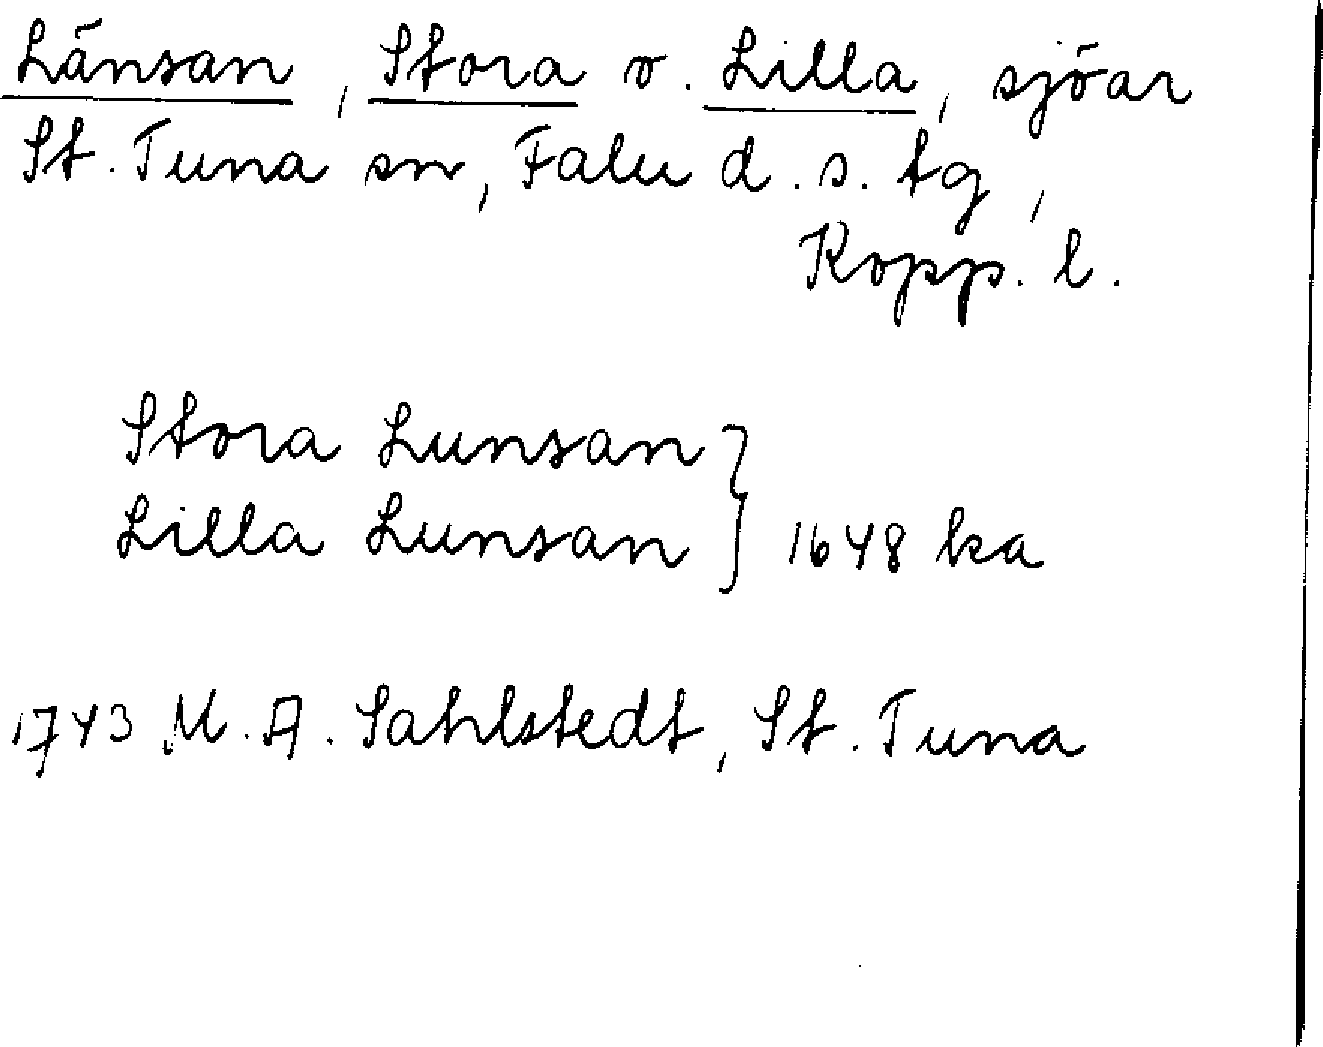 Länsan, Stora o. Lilla, sjöar
St. Tuna sn, Falu d. s. tg,
Kopp. l.
Stora Lunsan
Lilla Lunsan } 1648 ka
1743 M. A. Sahlstedt, St. Tuna